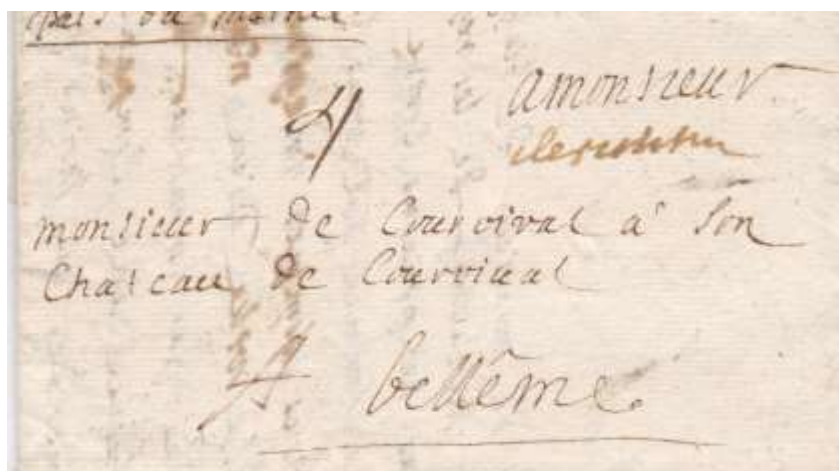 pais du maine
4 amonsieur
monsieur de Courvival a son
Chateau de Courvival
bellême